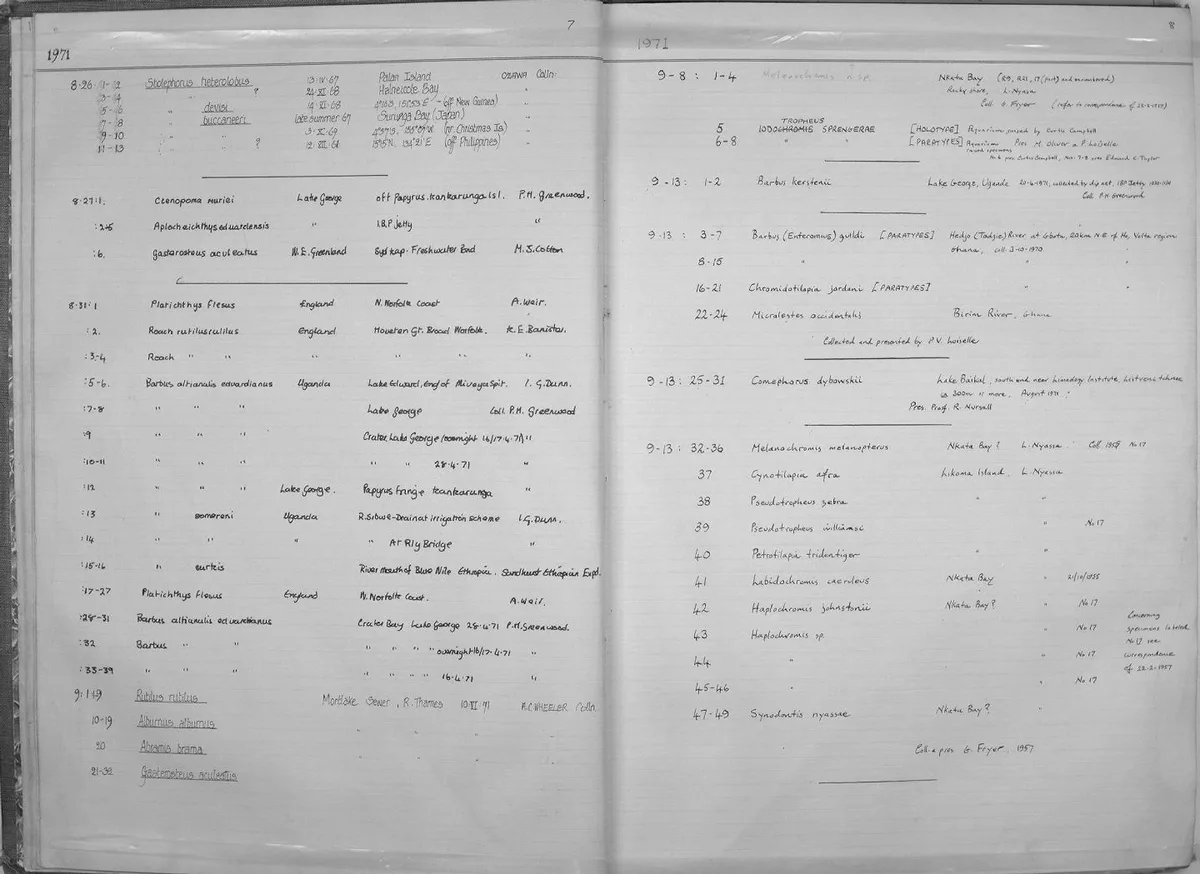 7
1971
8·26 1-2 Stolephorus heterolobus 13·IV·67 Palau Island OZAWA Colln:
3-4 " ? 21·XI·68 Hatneicote Bay "
5-6 " devisi 14·VI·68 - off New Guinea) "
7-8 " buccaneeri late summer 69 Suruga Bay (Japan) "
9-10 " " 3·X·69 (nr. Christmas Is) "
11-13 " " ? 12·III·68 134°21'E (off Philippines) "
8·27:1. Ctenopoma muriei Lake George off Papyrus. Kankarunga Isl. P.H. Greenwood.
:2-5 Aplocheichthys eduardensis " I.B.P Jetty "
:6. Gasterosteus aculeatus W.E. Greenland Sydkap. Freshwater Pond M. J. Cotton
8·31:1 Platichthys flesus England N. Norfolk Coast A. Weir.
:2. Roach rutilus rutilus England Hoveton Gt. Broad Norfolk. K. E. Banister.
:3-4 Roach " " " " " "
:5-6. Barbus altianalis eduardianus Uganda Lake Edward, end of Mweya Spit. I. G. Dunn.
:7-8 " " " Lake George Coll. P.H. Greenwood
:9 " " " Crater Lake George (overnight 16/17·4·71) "
:10-11 " " " " " 28·4·71 "
:12 " " " Lake George. Papyrus fringe Kankarunga "
:13 " somereni Uganda R. Sibwe - Drain at irrigation scheme I.G. Dunn.
:14 " " " " At Rly Bridge "
:15-16 " surkis River mouth of Blue Nile Ethiopia. Sandhurst Ethiopian Expd.
:17-27 Platichthys flesus England N. Norfolk Coast. A. Weir.
:28-31 Barbus altianalis eduardianus Crater Bay Lake George 28·4·71 P.H. Greenwood.
:32 Barbus " " " " " " overnight 16/17·4·71 "
:33-39 " " " " " " " 16·4·71 "
9·1:1-9 Rutilus rutilus Mortlake Sewer, R. Thames 10·II·71 A.C. WHEELER Colln.
10-19 Alburnus alburnus " " "
20 Abramis brama " " "
21-32 Gasterosteus aculeatus
8
1971
9-8: 1-4 Melanochromis n sp. Nkata Bay (R9, R21, 17 (part) and unnumbered)
Rocky shore, L. Nyasa
Coll. G. Fryer (refer to correspondence of 22-2-1957)
TROPHEUS
5 IODOCHROMIS SPRENGERAE [HOLOTYPE] Aquarium raised by Curtis Campbell
6-8 " " [PARATYPES] Aquarium raised specimens Pres M. Oliver & P. Loiselle
No. 6 pres Curtis Campbell, Nos. 7-8 pres Edward C. Taylor
9-13: 1-2 Barbus kerstenii Lake George, Uganda 20-6-1971, collected by dip net, IBP Jetty
Coll. P.H. Greenwood
9-13: 3-7 Barbus (Enteromius) guildi [PARATYPES] Hedjo (Tadjie) River at Gbota, 20km N.E. of Ho, Volta region
Ghana, coll. 3-10-1970
8-15 " " "
16-21 Chromidotilapia jordani [PARATYPES] " "
22-24 Micralestes occidentalis Birim River, Ghana
Collected and presented by P.V. Loiselle
9-13: 25-31 Comephorus dybowskii Lake Baikal, south end near Limnology Institute,
ca 300m or more, August 1971
Pres. Prof. R. Nursall
9-13: 32-36 Melanochromis melanopterus Nkata Bay? L. Nyassa. Coll. 1955 No 17
37 Cynotilapia afra Likoma Island, L. Nyassa
38 Pseudotropheus zebra " "
39 Pseudotropheus williamsi " No 17
40 Petrotilapia tridentiger " "
41 Labidochromis caeruleus Nkata Bay " 21/10/1955
42 Haplochromis johnstonii Nkata Bay? " No 17
43 Haplochromis sp. " No 17
44 " " No 17
45-46 " " No 17
Concerning
specimens labeled
No 17 see
correspondence
of 22-2-1957
47-49 Synodontis nyassae Nkata Bay? "
Coll. & pres G. Fryer, 1957